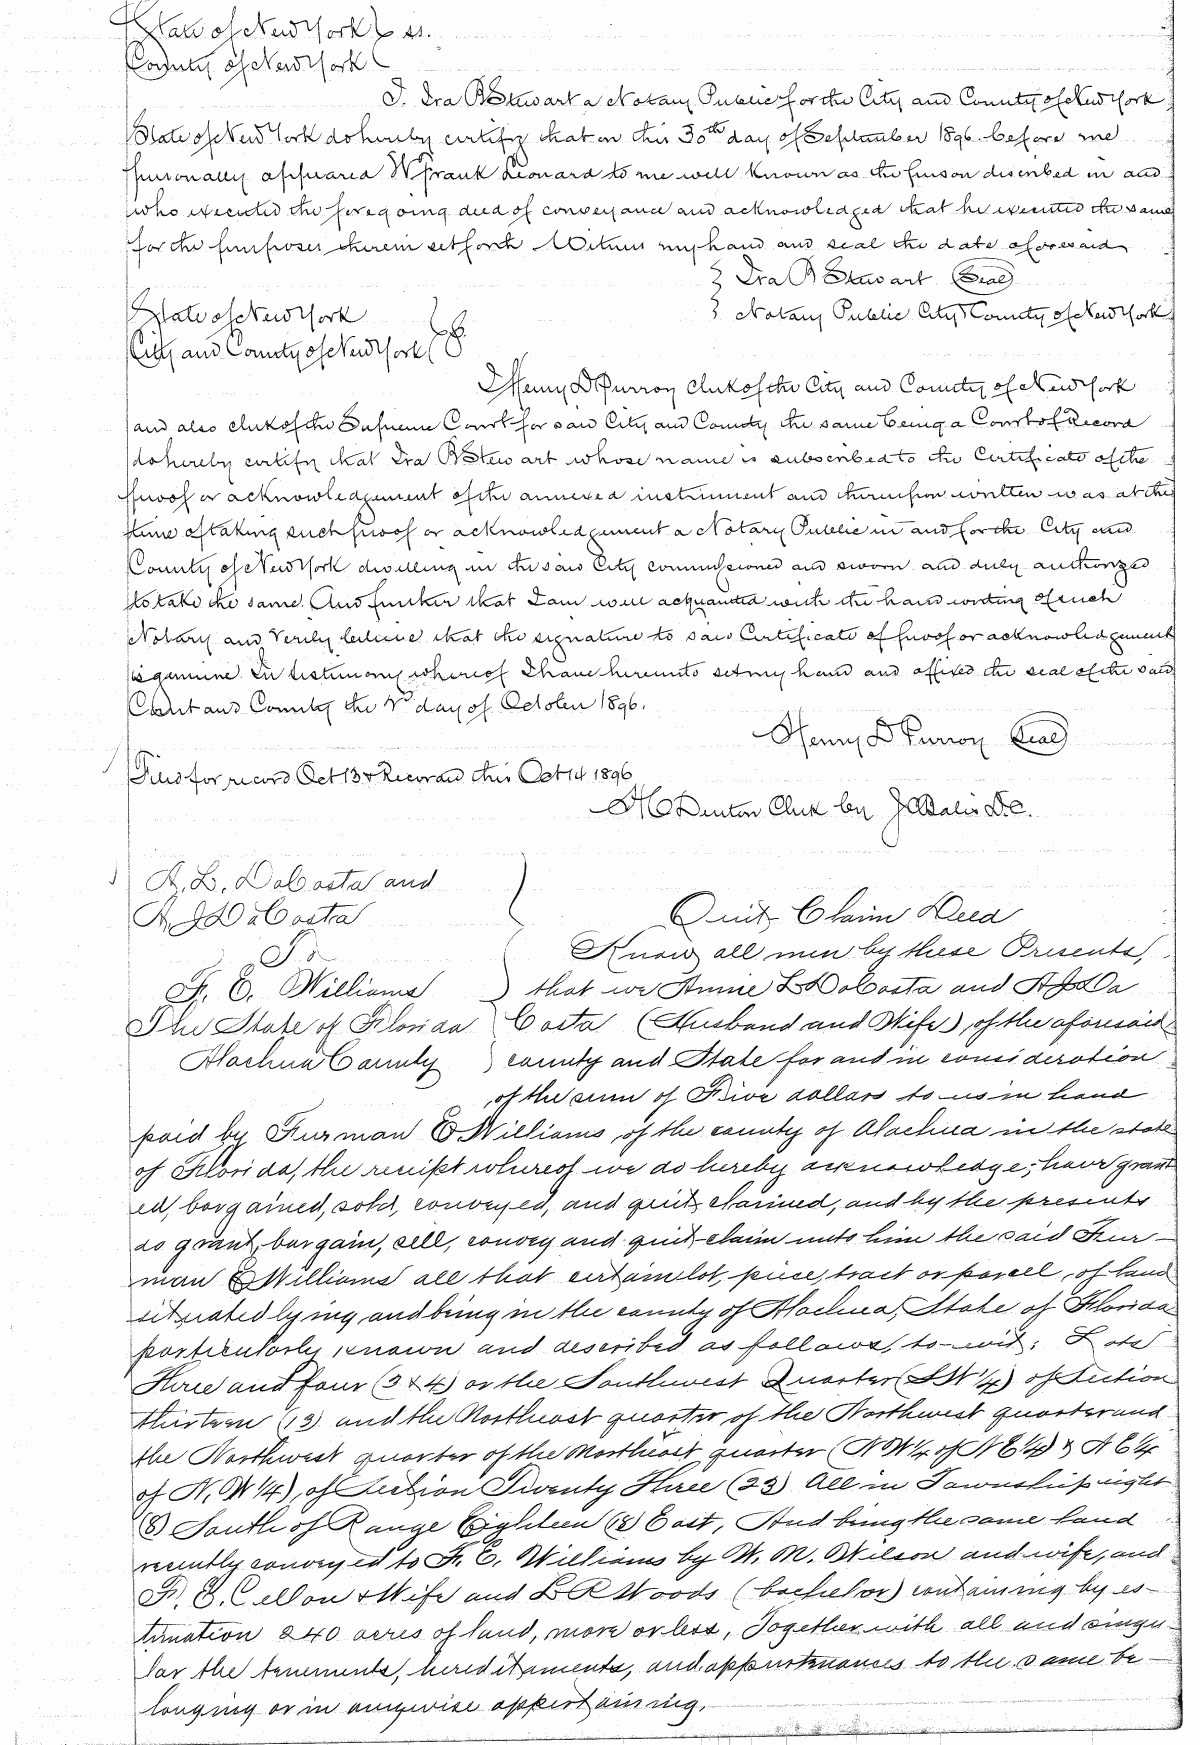 State of New York } ss.
County of New York
I. Ira B Stewart a Notary Public for the City and County of New York
State of New York do hereby certify that on this 30th day of September 1896 before me
personally appeared W Frank Leonard to me well known as the person discribed in and
who executed the foregoing deed of conveyance and acknowledged that he executed the same
for the purposes therein set forth Witness my hand and seal the date aforesaid
Ira B Stewart (Seal)
Notary Public City & County of New York
State of New York
City and County of New York
I Henry D Purroy clerk of the City and County of New York
and also clerk of the Supreme Court for said City and County the same being a Court of Record
do hereby certify that Ira B Stewart whose name is subscribed to the Certificate of the
proof or acknowledgement of the annexed instrument and thereupon written was at the
time of taking such proof or acknowledgement a Notary Public in and for the City and
County of New York dwelling in the said City commissioned and sworn and duly authorized
to take the same And further that I am well acquainted with the hand writing of such
Notary and Verily believe that the signature to said Certificate of proof or acknowledgement
is genuine In testimony whereof I have hereunto set my hand and affixed the seal of the said
Court and County the day of October 1896.
Henry D Purroy (Seal)
Filed for record Oct 13 & Recorded this Oct 14 1896
H C Denton Clerk by D.C.
A. L. DaCosta and
A J DaCosta
To
F. E. Williams
The State of Florida
Alachua County
Quit Claim Deed
Know all men by these Presents,
that we Annie L DaCosta and A J Da
Costa (Husband and Wife), of the aforesaid
county and State for and in consideration
of the sum of Five dollars to us in hand
paid by Furman E Williams, of the county of Alachua in the state
of Florida, the receipt whereof we do hereby acknowledge, have grant
ed, bargained, sold, conveyed, and quit claimed, and by the presents
do grant, bargain, sell, convey and quit-claim unto him the said Fur-
man E Williams all that certain lot, piece, tract or parcell, of land
situated lying, and being in the county of Alachua, State of Florida
particularly known and described as follows, to-wit: Lots
Three and four (3 & 4) or the Southwest Quarter (S W 1/4) of Section
thirteen (13) and the Northeast quarter of the Northwest quarter and
the Northwest quarter of the Northeast quarter (N W 1/4 of N E 1/4) & N E 1/4
of N. W 1/4), of Section Twenty Three (23) All in Township eight
(8) South of Range Eighteen (18) East, And being the same land
recently conveyed to F. E. Williams by W. M. Wilson and wife, and
Cellon & Wife and L R Woods (bachelor) containing by es-
timation 240 acres of land, more or less, Together with all and singu-
lar the tenements, hereditaments, and appurtenances to the same be-
longing or in anywise appertaining.